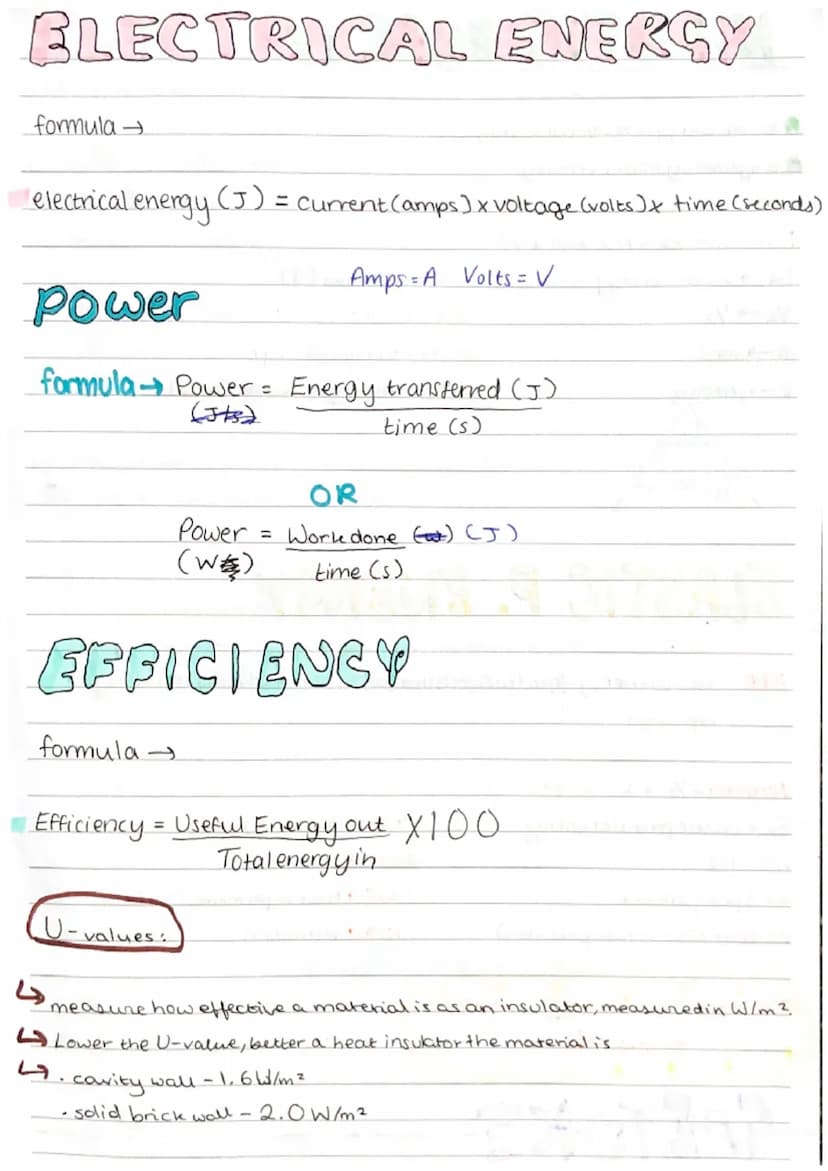 ELECTRICAL ENERGY
formula →
electrical energy (J) = current (amps) x voltage (volts) x time (seconds)
Amps = A Volts = V
Power
formula → Power = Energy transferred (J)
time (s)
OR
Power = Work done (J)
(W) time (s)
EFFICIENCY
formula →
Efficiency = Useful Energy out X100
Total energy in
U-values:
↳ measure how effective a material is as an insulator, measured in W/m².
↳ Lower the U-value, better a heat insulator the material is
↳ · cavity wall - 1.6 W/m²
· solid brick wall - 2.0 W/m²